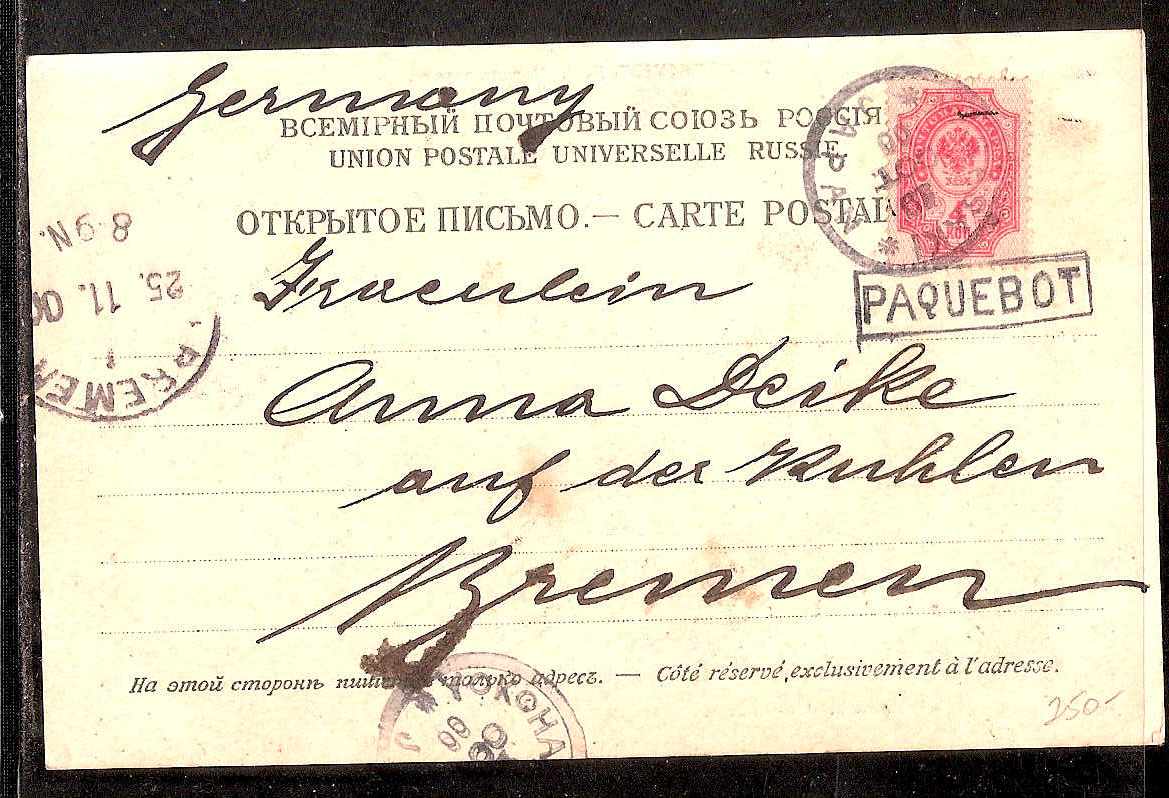 Germany
ВСЕМІРНЫЙ ПОЧТОВЫЙ СОЮЗЪ РОССІЯ.
UNION POSTALE UNIVERSELLE RUSSIE
ОТКРЫТОЕ ПИСЬМО.— CARTE POSTALE
JAPAN
PAQUEBOT
8-9N.
25.11.00
BREMEN
1
Fraeulein
Anna Deike
auf der Kuhlen
Bremen
На этой сторонѣ только адресъ. — Côté réservé exclusivement à l'adresse.
YOKOHA
250-